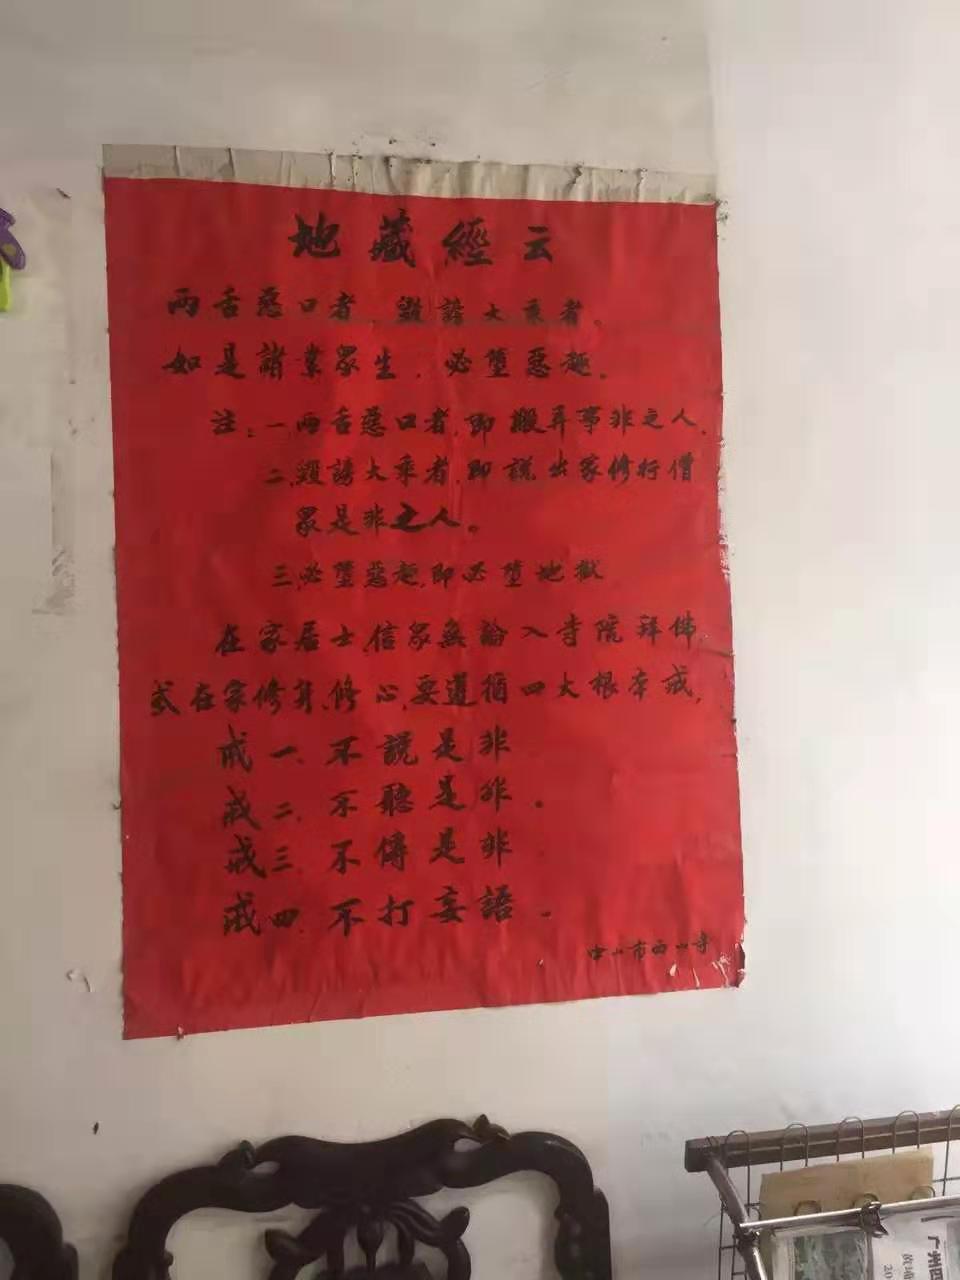 地藏經云
兩舌惡口者 毀謗大乘者。
如是諸業眾生,必墮惡趣。
注:一、兩舌惡口者,即搬弄事非之人,
二、毀謗大乘者,即說出家修行僧
眾是非之人。
三、必墮惡趣,即必墮地獄
在家居士,信眾無論入寺院拜佛,
或在家修身、修心,要遵循四大根本戒,
戒一、不說是非
戒二、不聽是非。
戒三、不傳是非
戒四、不打妄語。
中山市西山寺
广州